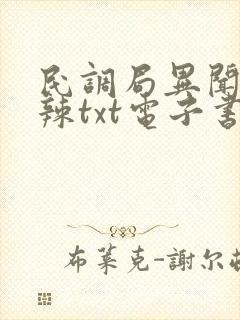 民調局異聞
辣txt電子書
布萊克-謝尔